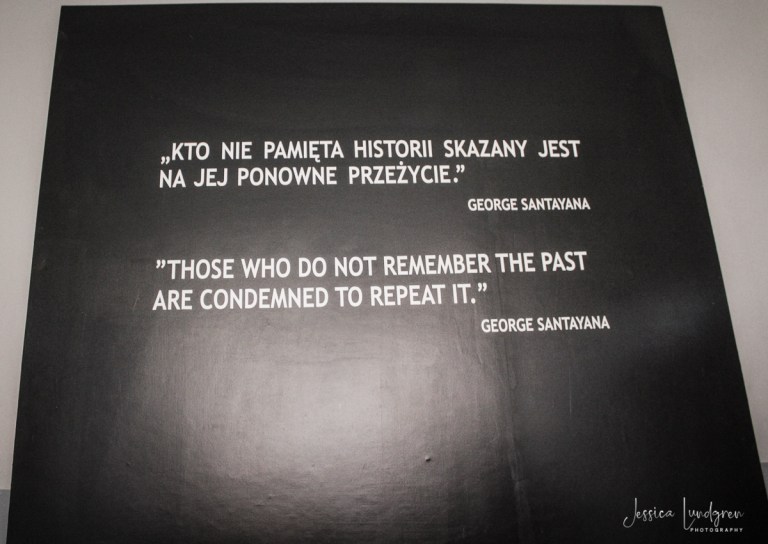 „KTO NIE PAMIĘTA HISTORII SKAZANY JEST
NA JEJ PONOWNE PRZEŻYCIE.”
GEORGE SANTAYANA
”THOSE WHO DO NOT REMEMBER THE PAST
ARE CONDEMNED TO REPEAT IT.”
GEORGE SANTAYANA
Jessica Lundgren
PHOTOGRAPHY